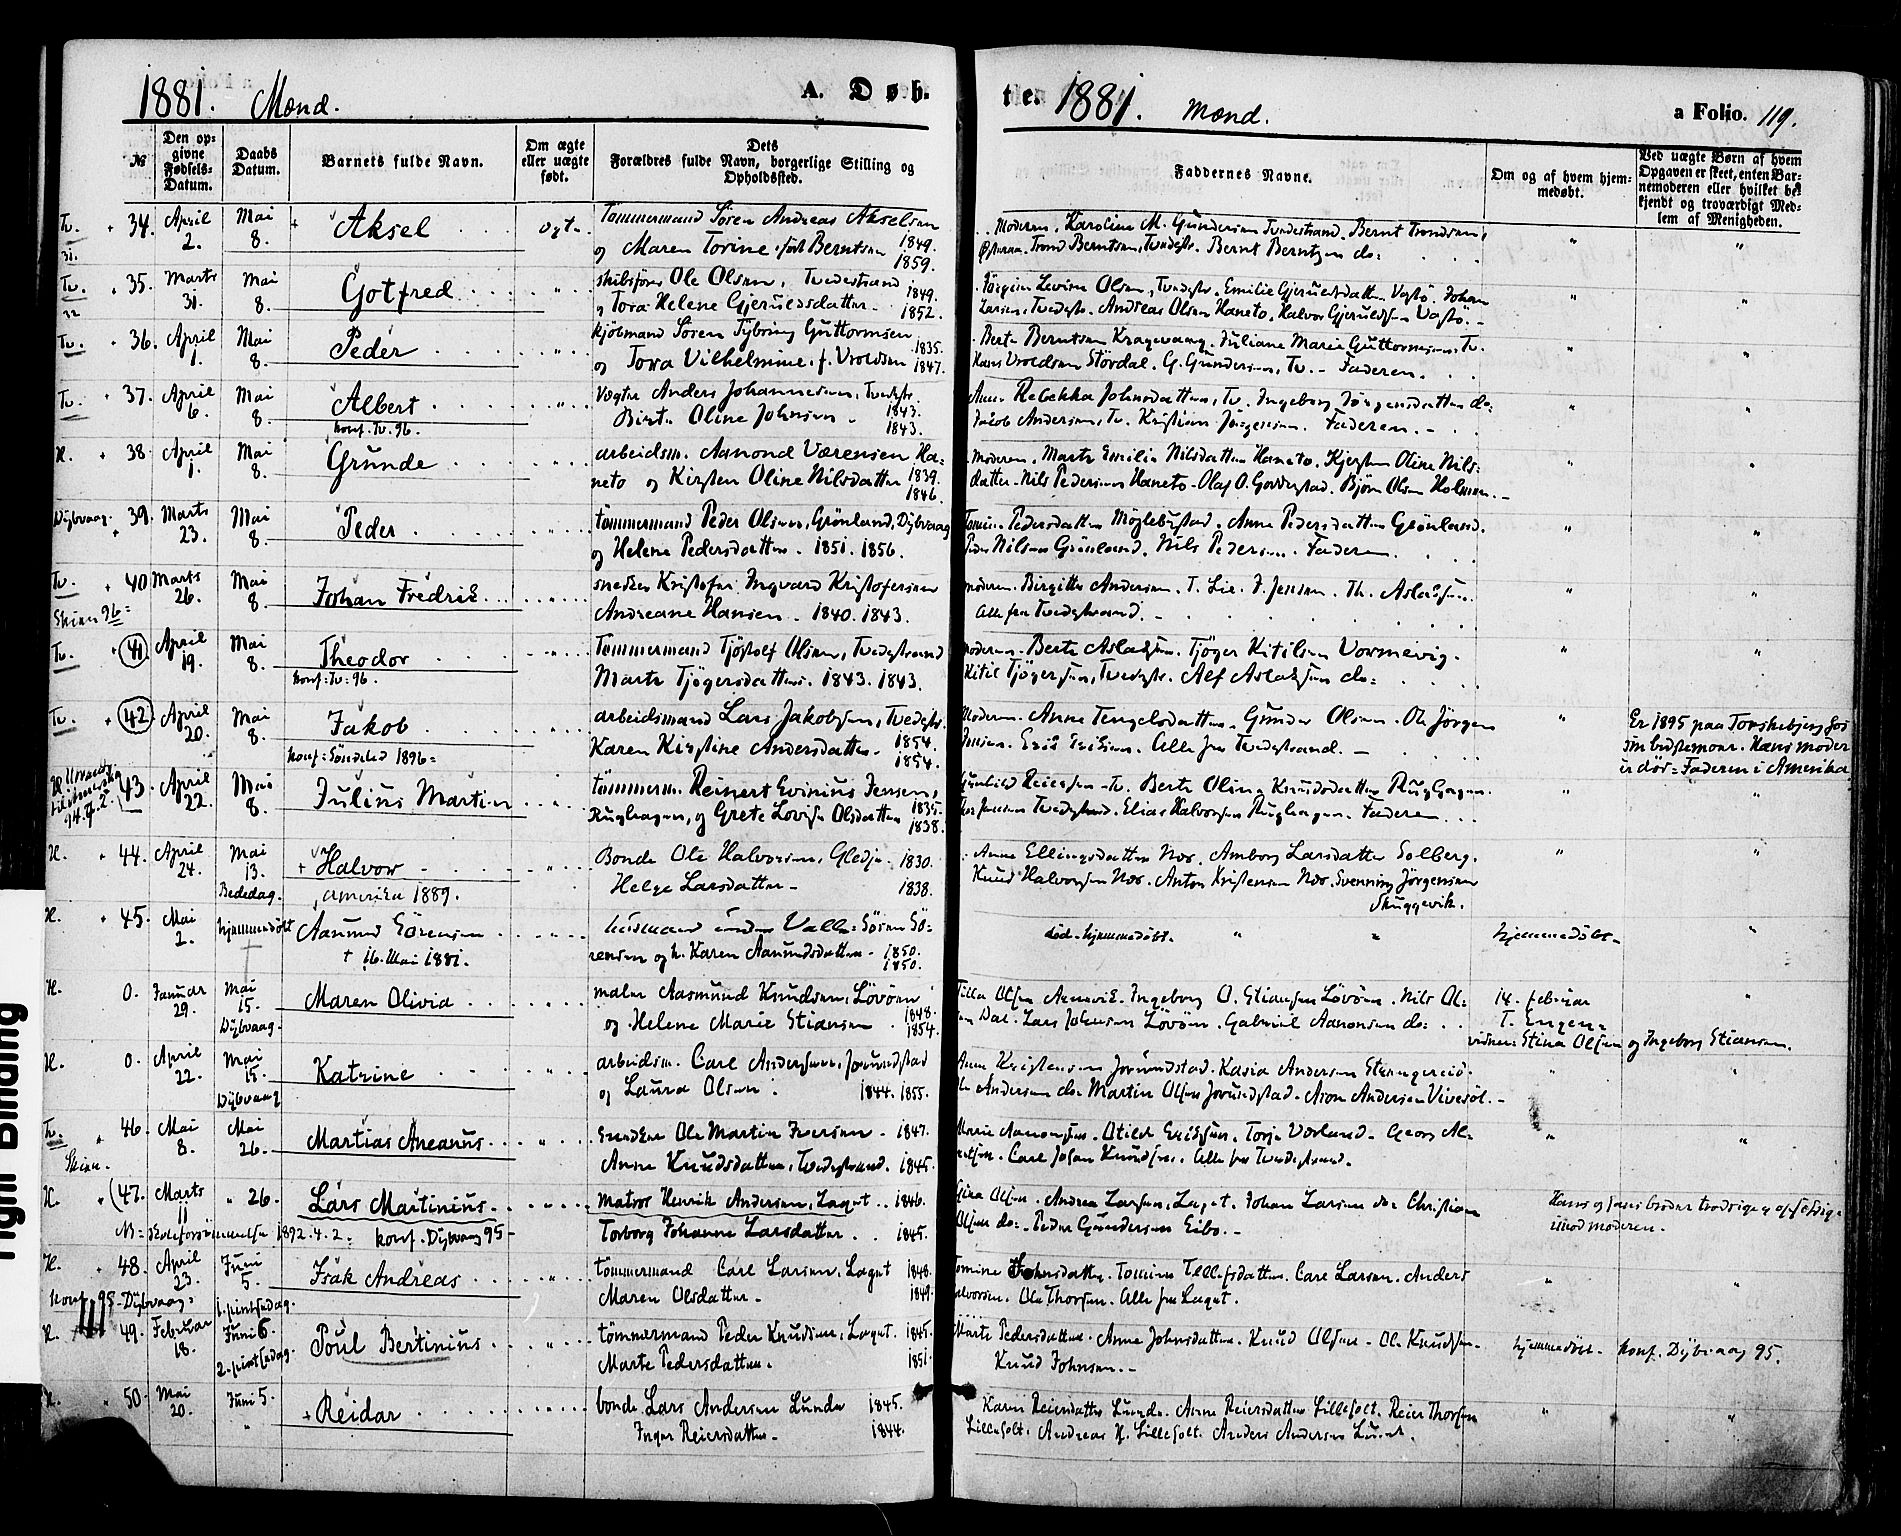 1881. Mænd. A. Døb.
№
Den opgivne Fødsels-Datum.
Daabs Datum.
Barnets fulde Navn.
Om ægte eller uægte født.
Dets Forældres fulde Navn, borgerlige Stilling og Opholdssted.
Tv. 34. April 2. Mai 8. Aksel ægte Tømmermand Søren Andreas Akselsen 1849.
31. og Maren Torine, født Berntsen 1859.
Tv. 35. Marts 31. Mai 8. Gotfred skibsfører Ole Olsen, Tvedestrand 1849.
32 og Tora Helene Gjeruldsdatter 1852.
Tv. 36. April 1. Mai 8. Peder kjøbmand Søren Tybring Guttormsen 1835.
og Tora Vilhelmine, f. Vroldsen 1847.
Tv. 37. April 6. Mai 8. Albert Vægter Anders Johannesen, Tvedestr. 1843.
konf. Tv. 96. Birte Oline Johnsen 1843.
H. 38. April 1. Mai 8. Grunde arbeidsm. Aanond Værensen Ha=
neto og Kirsten Oline Nilsdatter 1839. 1846.
Dybvaag. 39. Marts 23. Mai 8. Peder tømmermand Peder Olsen, Grønland, Dybvaag
og Helene Pedersdatter. 1851. 1856.
Tv. 40. Marts 26. Mai 8. Johan Fredrik snedker Kristofer Ingvard Kristofersen
Skien 96= Andreane Hansen. 1840. 1843.
Tv. 41. April 19. Mai 8. Theodor Tømmermand Tjøstolf Olsen, Tvedestrand
konf. Tv. 96. Marte Tjøgersdatter. 1843. 1843.
Tv. 42. April 20. Mai 8. Jakob arbeidsmand Lars Jakobsen, Tvedestr. 1854.
konf. Søndeled 1896= Karen Kirstine Andersdatter 1854.
H. 43. April 22. Mai 8. Julius Martin tømmerm. Reinert Evinius Jensen, 1835.
94. 4. 2. Rughagen, og Grete Lovise Olsdatter 1838.
H. 44. April 24. Mai 13. Bededag. + Halvor Bonde Ole Halvorsen, Gledje 1830.
Amerika 1889. Helge Larsdatter 1838.
H. 45. Mai 2. hjemmedøbt Aanund Sørensen husmand under Valle Søren Sø=
† 16. Mai 1881. rensen og h. Karen Aanundsdatter 1850. 1850.
H. 0. Januar 29. Mai 15. Dybvaag. Maren Olivia maler Aasmund Knudsen, Løvøen 1848.
og Helene Marie Stiansen 1854.
H. 0. April 22. Mai 15. Dybvaag Katrine arbeidsm. Carl Andersen, Jorundstad
og Laura Olsen 1844. 1855.
Tv. 46. Mai 8. Mai 26. Martias Aneanus Ole Martin Iversen 1847.
Skien. Anne Knudsdatter, Tvedestrand. 1845.
H. 47. Marts 11 26. Lars Martinius matros Henrik Andersen, Laget 1846.
1892. 4. 2. konf. Dybvaag 95 Torborg Johanne Larsdatter 1845.
H. 48. April 23. Juni 5. Isak Andreas tømmermand Carl Larsen, Laget 1848.
konf. 95 Dybvaag= 1. pintsedag. Maren Olsdatter 1849.
H. 49. Februar 18. Juni 6. 2. pintsedag. Poul Bertinius tømmermand Peder Knudsen, Laget 1845.
Marte Pedersdatter. 1851.
H. 50. Mai 20. Juni 5. + Reidar bonde Lars Andersen Lunde 1845.
Inger Reiersdatter 1844.
te. 1881. Mænd. a Folio. 119.
Faddernes Navne.
Om og af hvem hjemmedøbt.
Ved uægte Børn af hvem Opgaven er skeet, enten Barnemoderen eller hvilket bekjendt og troværdigt Medlem af Menigheden.
Moderen. Karoline M. Gundersen Tvedestrand. Bernt Trondsen,
Trond Berntsen, Tvedestr. Bernt Berntsen do=
Jørgine Levine Olsen, Tvedestr. Emilie Gjeruldsdatter Vaslø. Johan
Larsen, Tvedestr. Andreas Olsen Haneto, Halvor Gjeruldsen
Berte Berntsen Juliane Marie Guttormsen, Tv.
Hans Vroldsen Størdal. G. Gundersen, Tv. Faderen.
Anne Rebekka Johnsdatter, Tv. Ingeborg Jørgensdatter do=
Jakob Andersen, Tv. Kristian Jørgensen. Faderen.
Moderen. Marte Emilie Nilsdatter Haneto. Kjersten Oline Nils=
datter. Nils Pedersen Haneto. Olaf O. Goderstad. Bjørn Olsen Holmen.
Pedersdatter Møglebustad. Anne Pedersdatter Grønland.
Peder Nilsen Grønland. Nils Pedersen. Faderen.
Moderen. Birgitte Andersen. T. Lie. J. Jensen. Th. Aslaksen.
Alle fra Tvedestrand.
Moderen. Berte Aslaksen. Tjøger Kitilsen Vormevig.
Kitil Tjøgersen, Tvedestr. Alf Aslaksen do=
Moderen. Anne Tengelsdatter. Gunder Olsen. Ole Jørgen
Jensen. Erik Eriksen. Alle fra Tvedestrand.
Er 1895 paa Torskebjerg hos
sin bedstemor. Hans moder
er død= Faderen i Amerika
Gunhild Reiersen Tv. Berte Oline Knudsdatter Rughagen.
Jensen Tvedestrand. Elias Halvorsen Rughagen. Faderen.
Anne Ellingsdatter Næs. Amborg Larsdatter Solberg.
Knud Halvorsen Næs. Anton Kristensen Næs. Svenning Jørgensen
Skuggevik.
død. hjemmedøbt. hjemmedøbt.
Olsen Ingeborg O. Stiansen Løvøen. Nils Ol=
sen Dal. Lars Johnsen Løvøen. Gabriel Aanonsen do=
14. februar
T. Engen=
vidner= Stina Olsen og Ingeborg Stiansen.
Anne Kristensen Jorundstad. Kasia Andersen
Andersen do= Martin Olsen Jorundstad. Aron Andersen
Marie Aanonsen. Otilde Eriksen. Torje Vorland. Georg
Carl Johan Knudsen. Alle fra Tvedestrand.
Gina Olsen. Andrea Larsen, Laget. Johan Larsen do= Christian
Olsen do= Peder Gundersen Eibo.
imod moderen.
Tomine Johnsdatter. Tomine Tellefsdatter. Carl Larsen. Anders
Halvorsen. Ole Thorsen. Alle fra Laget.
Marte Pedersdatter. Anne Johnsdatter. Knud Olsen. Ole Knudsen.
Knud Johnsen.
hjemmedøbt. konf. Dybvaag 95.
Karen Reiersdatter Lunde. Anne Reiersdatter Lilleholt. Reier Thorsen
Lilleholt. Andreas H. Lilleholt. Anders Andersen Lunde.
Right Binding